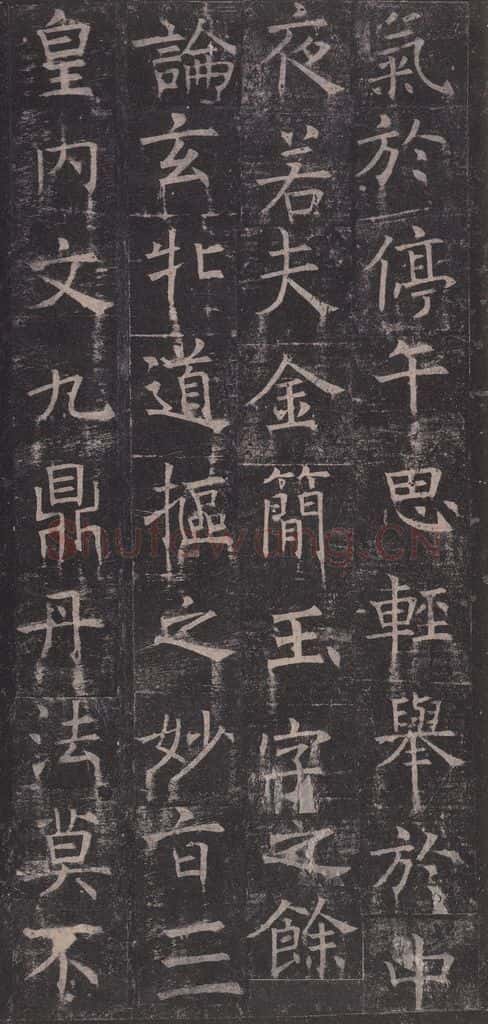 氣於停午思輕舉於中
夜若夫金簡玉字之餘
論玄牝道摳之妙㫖三
皇內文九鼎丹法莫不
Shufawang.CN